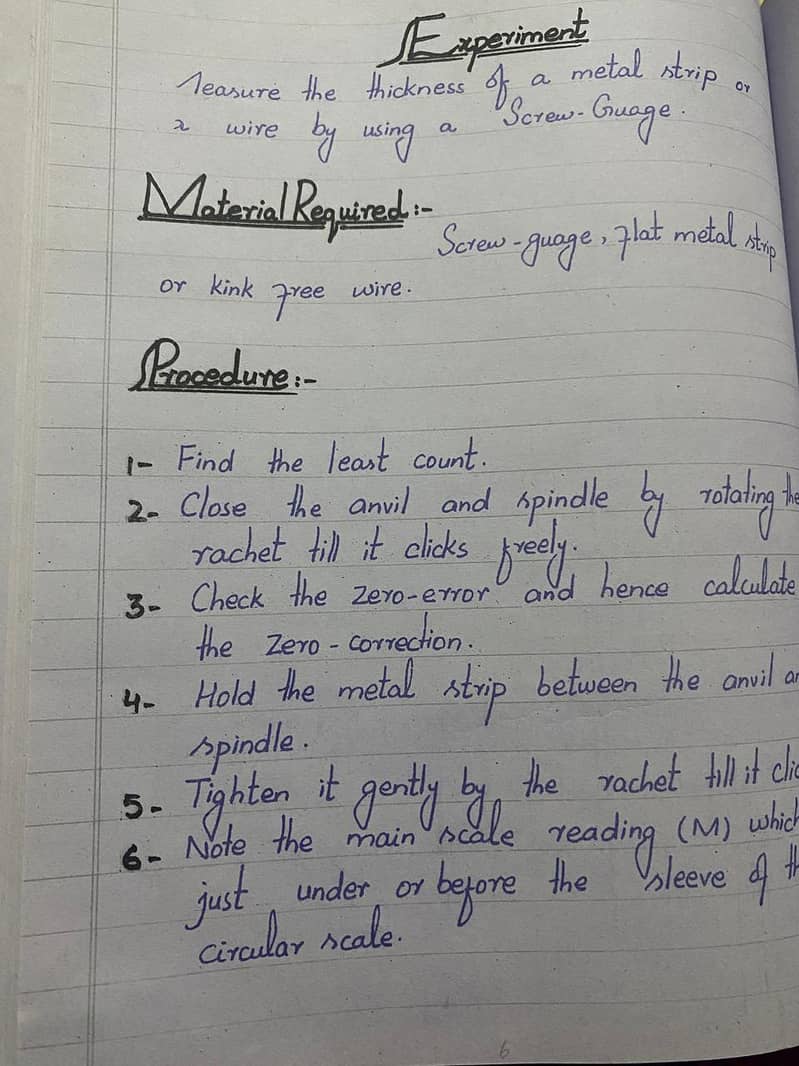 Experiment
Measure the thickness of a metal strip or
a wire by using a Screw-Guage.
Material Required:-
Screw-guage, flat metal strip
or kink free wire.
Procedure:-
1- Find the least count.
2- Close the anvil and spindle by rotating the
rachet till it clicks freely.
3- Check the zero-error and hence calculate
the zero-correction.
4- Hold the metal strip between the anvil an
spindle.
5- Tighten it gently by the rachet till it clic
6- Note the main scale reading (M) which
just under or before the sleeve of th
circular scale.
6